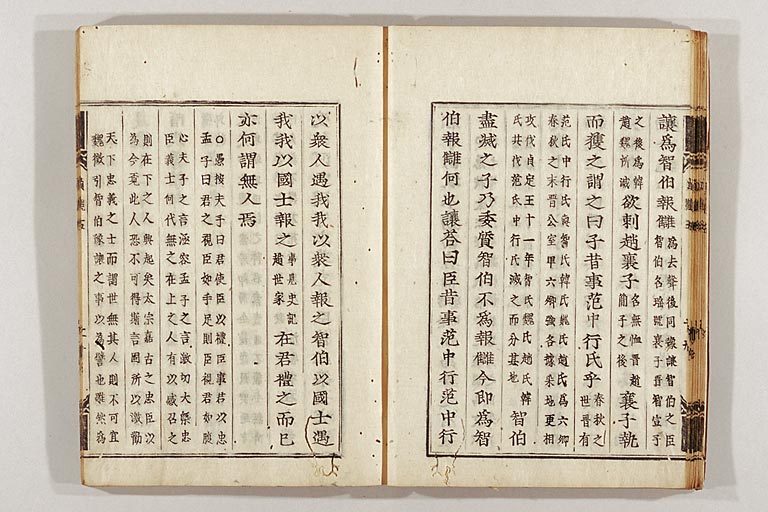 讓爲智伯報讎爲去聲後同豫讓智伯之臣
智伯名瑤號襄子晉智宣子
之後爲韓
趙魏所滅欲刺趙襄子名無恤晉趙
簡子之後襄子執
而獲之謂之曰子昔事范中行氏乎春秋之
世晉有
范氏中行氏與智氏韓氏魏氏趙氏爲六卿
春秋之末晉公室卑六卿強各據采地更相
攻伐貞定王十一年智氏魏氏趙氏韓
氏共伐范氏中行氏滅之而分其地智伯
盡滅之子乃委質智伯不爲報讎今即爲智
伯報讎何也讓答曰臣昔事范中行范中行
以衆人遇我我以衆人報之智伯以國士遇
我我以國士報之事見史記
趙世家在君禮之而已
亦何謂無人焉
○愚按夫子曰君使臣以禮臣事君以忠
孟子曰君之視臣如手足則臣視君如腹
心夫子之言渾容孟子之言激切大槩忠
臣義士何代無之在上之人有以感召之
則在下之人興起矣太宗嘉古之忠臣以
爲今覓此人恐不可得斯言固所以激勸
天下忠義之士而謂世無其人則不可宜
魏徵引智伯豫讓之事以爲譬也雖然爲